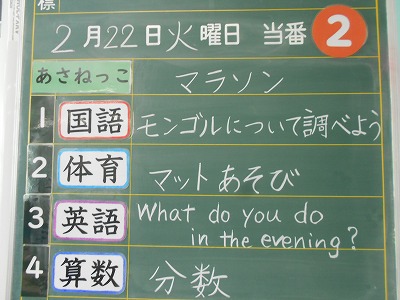 標
2月22日火曜日 当番 2
あさねっこ マラソン
1 国語 モンゴルについて調べよう
2 体育 マットあそび
3 英語 What do you do
in the evening?
4 算数 分数